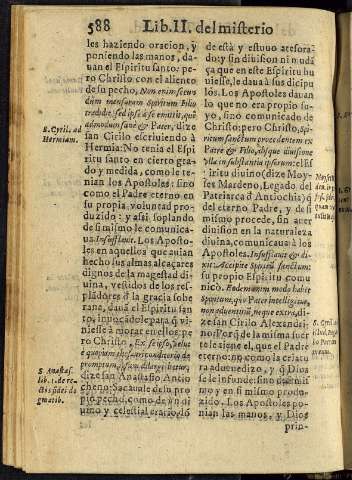 588 Lib. II. del misterio
les haziendo oracion, y
poniendo las manos, da-
uan el Espiritu santo: pe-
ro Christo con el aliento
de su pecho, Non enim secun
dum mensuram Spiritum Filio
tradidit, sed ipsū à se emittit, qui
admodum sanè & Pater, dize
san Cirilo escriuiendo à
Hermia: No tenia el Espi
ritu santo en cierto gra-
do y medida, como le te-
nian los Apostoles: sino
como el Padre eterno en
su propia voluntad pro-
duzido: y assi soplando
de si mismo le comunica-
ua. Insufflauit. Los Aposto-
les en aquellos que auian
hecho sus almas alcaçares
dignos de la magestad di-
uina, vestidos de los res-
plādores ð la gracia sobe
rana, daua el Espiritu san
to, inuocādole para q̄ vi-
niesse à morar en ellos: pe
ro Christo,
dize san Anastasio Antio
cheno: Sacauale de su pro
pio pecho, como de vn di
uino y celestial erario, dō
S. Cyril. ad
Hermiam.
S. Anastas.
lib. 1. de re-
ctis fidei do
gmatib.
de està y estuuo atesora-
do: y sin diuision ni muda
ça que en este Espiritu hu
uiesse, le daua à sus dicipu
lòs. Los Apostoles dauan
lo que no era propio su-
yo, sino comunicado de
Christo: pero Christo, Spi
ritum sanctum procedentem ex
Patre & Filio, absque diuisione
vlla in substantia ipsorum: el Es
piritu diuino (dize Moy-
ses Mardeno, Legado del
Patriarca ð Antiochia) ð
del eterno Padre, y de si
mismo procede, sin auer
diuision en la naturaleza
diuina, comunicaua à los
Apostoles. Insufflauit & di-
xit: Accipite Spiritū sanctum:
su propio Espiritu comu
nicò. Eodem enim modo habet
Spiritum, quo Pater intelligitur,
non aduentitiū, neque extra, di-
ze san Cirilo Alexandri-
no. Porq̄ de la misma suer
te le tiene que el Padre
eterno: no como la criatu
ra aduenedizo, y q̄ Dios
se le infunde: sino de si mis
mo y en si mismo produ-
zido. Los Apostoles po-
nian las manos, y Dios
prin-
S. Cyril.